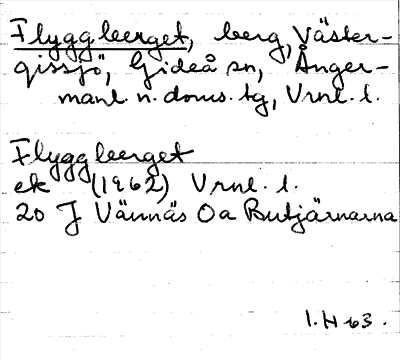 Flyggberget, berg, Väster-
gissjö, Gideå sn, Ånger-
manl n. doms. tg, Vrnl. l.
Flyggberget
ek (1962) Vrnl. l.
20 J Vännäs Oa Butjärnarna
I. H 63.